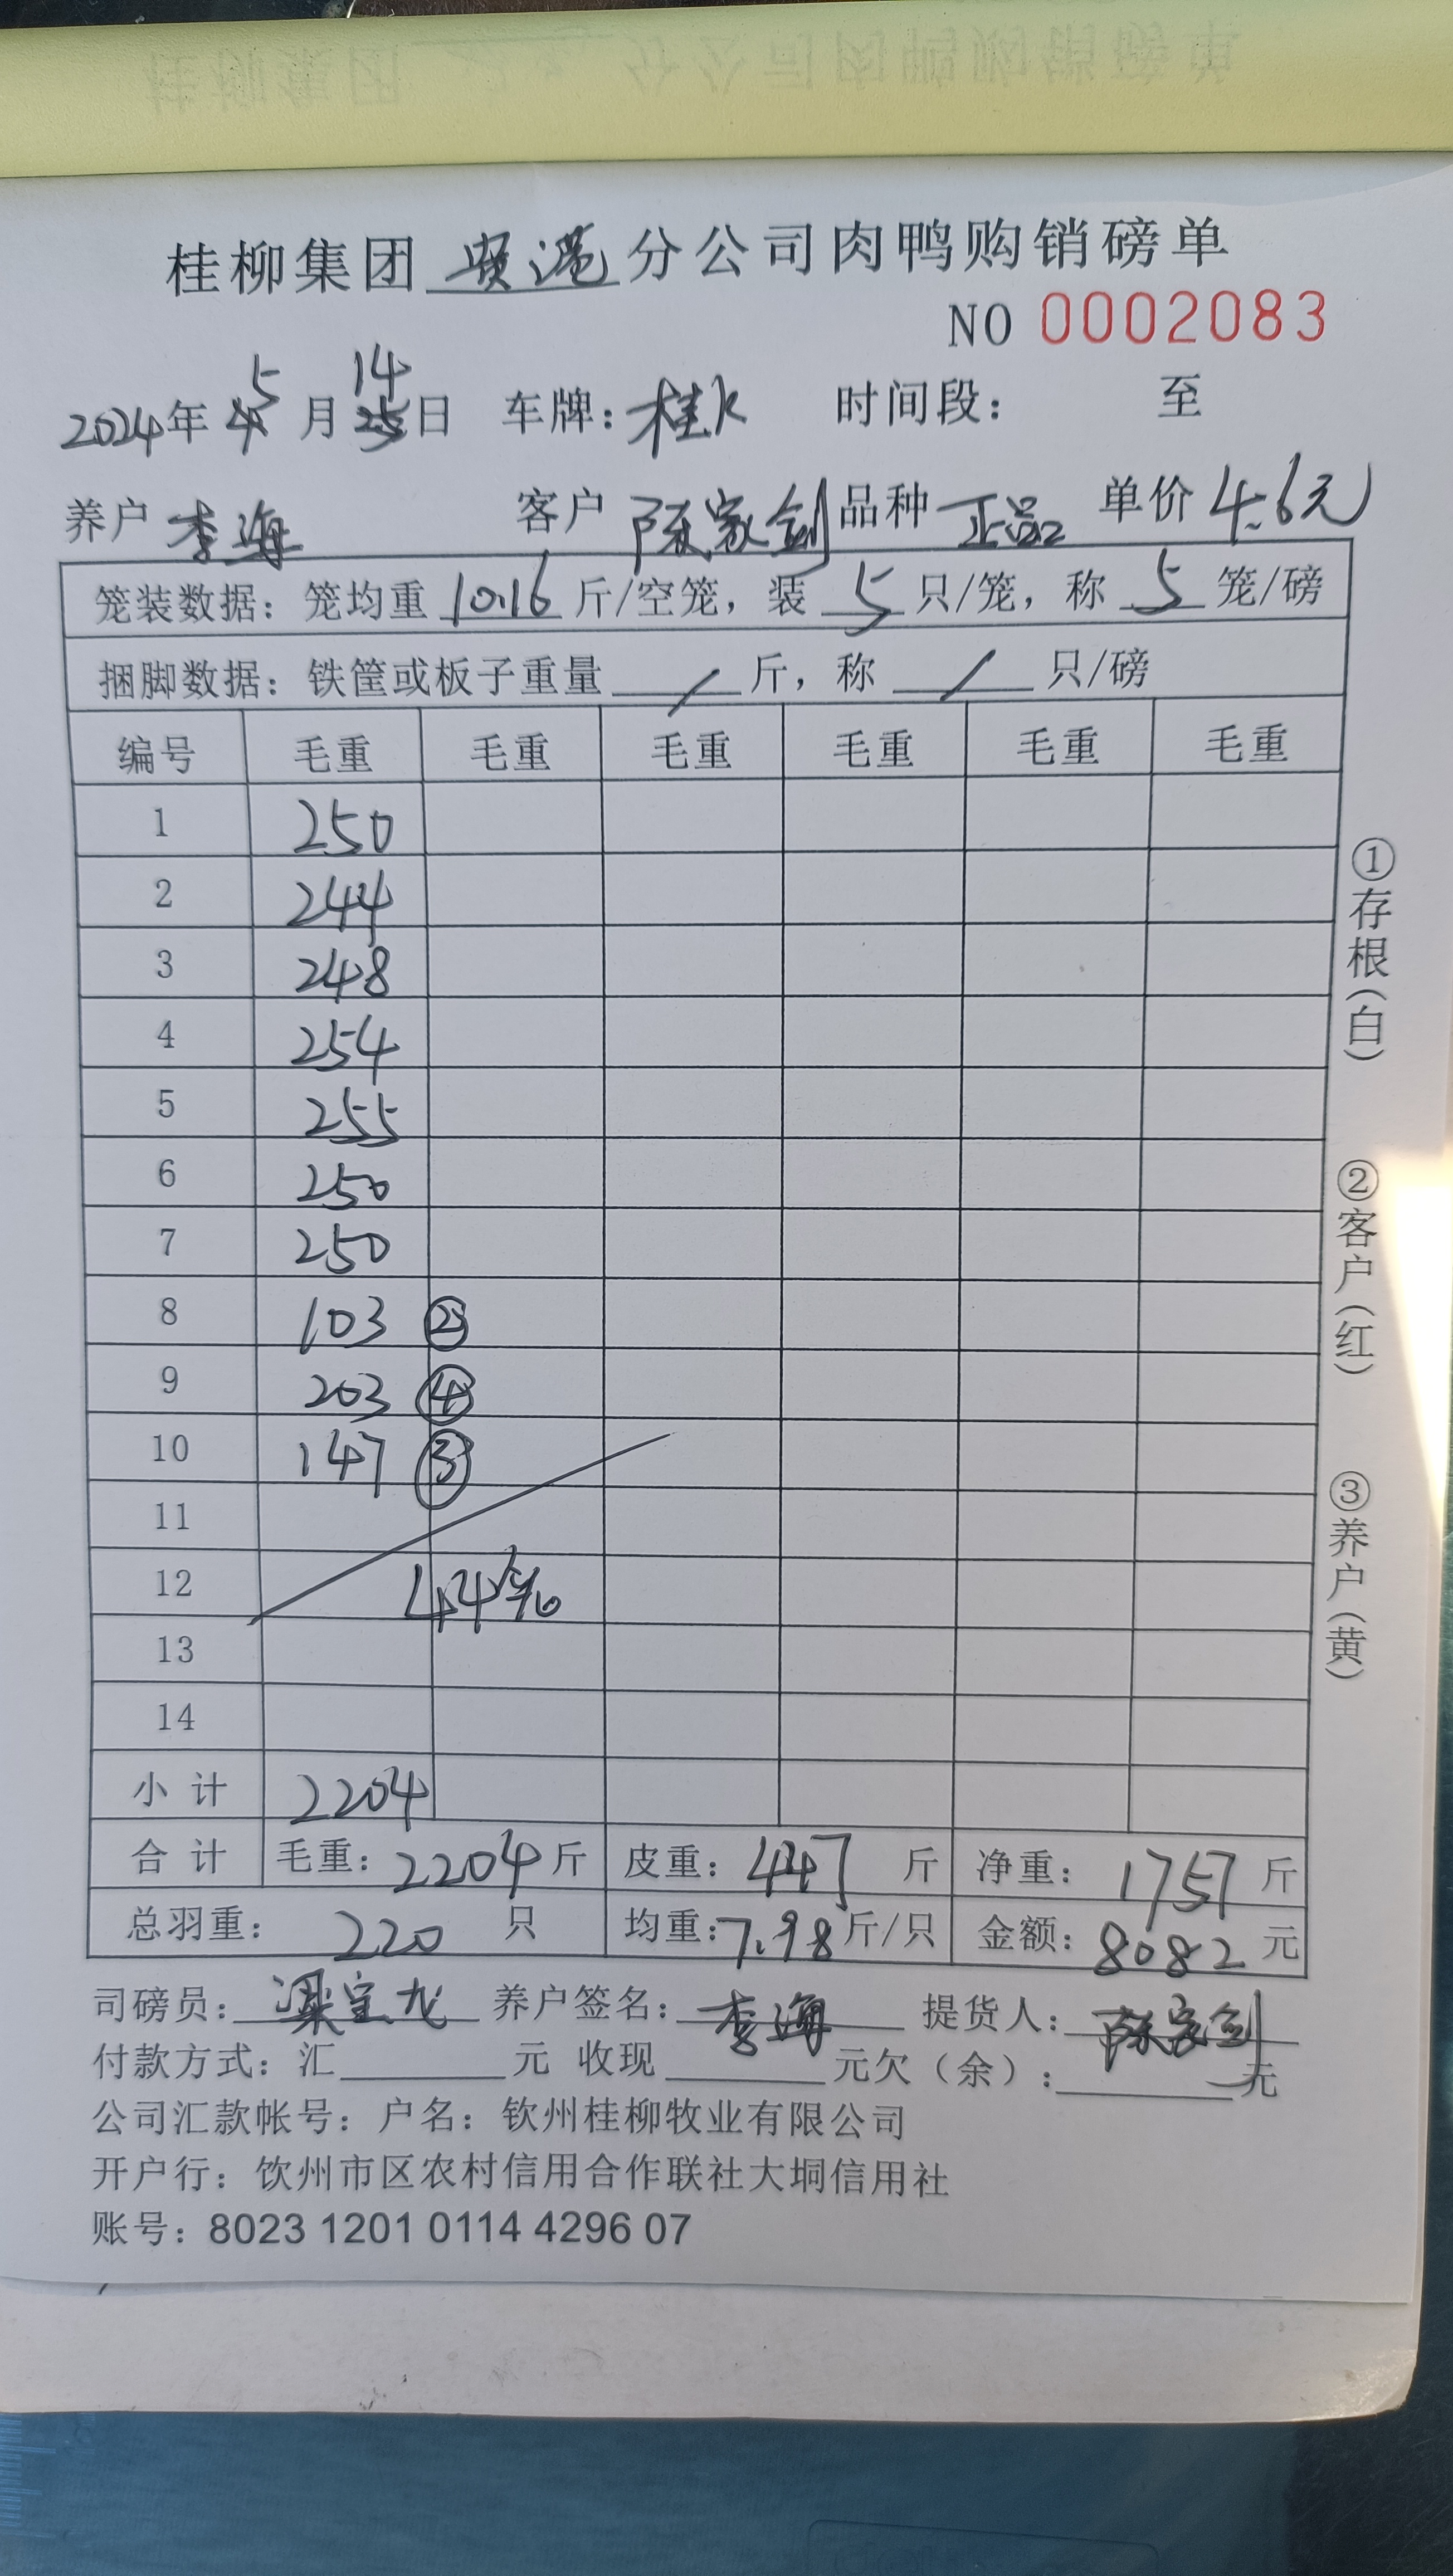 桂柳集团贵港分公司肉鸭购销磅单
NO 0002083
5 14
2024年 月 日 车牌：桂K 时间段： 至
养户 李海 客户 陈家剑 品种 正品 单价 4.6元
笼装数据：笼均重 10.16 斤/空笼，装 5 只/笼，称 5 笼/磅
捆脚数据：铁筐或板子重量 / 斤，称 / 只/磅
编号 毛重 毛重 毛重 毛重 毛重 毛重
1 250
2 244
3 248
4 254
5 255
6 250
7 250
8 103 ②
9 203 ④
10 147 ③
11
12 44笼
13
14
小计 2204
合计 毛重：2204斤 皮重：447 斤 净重：1757斤
总羽重：220 只 均重：7.98斤/只 金额：8082元
司磅员：梁宝龙 养户签名：李海 提货人：陈家剑
付款方式：汇 元 收现 元欠（余）： 元
公司汇款帐号：户名：钦州桂柳牧业有限公司
开户行：饮州市区农村信用合作联社大垌信用社
账号：8023 1201 0114 4296 07
①存根（白）
②客户（红）
③养户（黄）